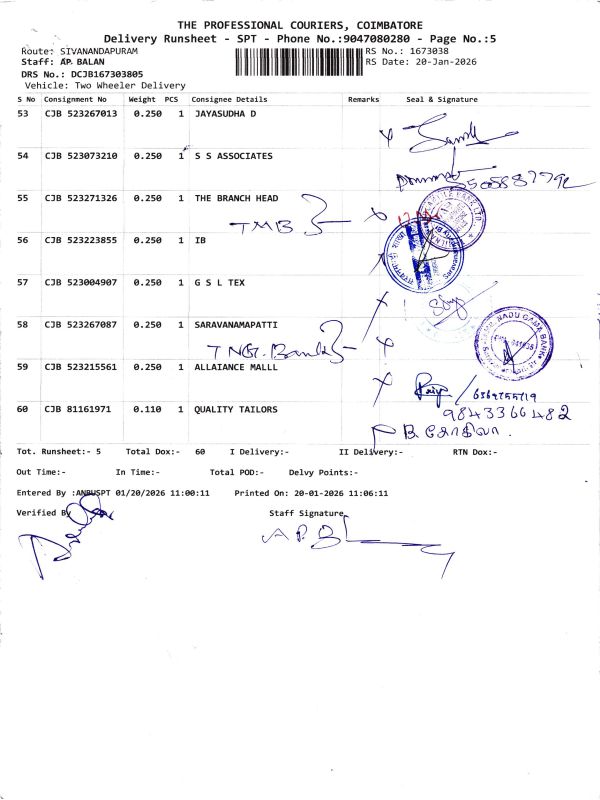 THE PROFESSIONAL COURIERS, COIMBATORE
Delivery Runsheet - SPT - Phone No.:9047080280 - Page No.:5
Route: SIVANANDAPURAM RS No.: 1673038
Staff: AP. BALAN RS Date: 20-Jan-2026
DRS No.: DCJB167303805
Vehicle: Two Wheeler Delivery
S No Consignment No Weight PCS Consignee Details Remarks Seal & Signature
53 CJB 523267013 0.250 1 JAYASUDHA D
54 CJB 523073210 0.250 1 S S ASSOCIATES
55 CJB 523271326 0.250 1 THE BRANCH HEAD
TMB
56 CJB 523223855 0.250 1 IB
57 CJB 523004907 0.250 1 G S L TEX
58 CJB 523267087 0.250 1 SARAVANAMAPATTI
TNG. Bank
59 CJB 523215561 0.250 1 ALLAIANCE MALLL
60 CJB 81161971 0.110 1 QUALITY TAILORS
9843366482
B. கோகிலா.
Tot. Runsheet:- 5 Total Dox:- 60 I Delivery:- II Delivery:- RTN Dox:-
Out Time:- In Time:- Total POD:- Delvy Points:-
Entered By :ANBUSPT 01/20/2026 11:00:11 Printed On: 20-01-2026 11:06:11
Verified By Staff Signature